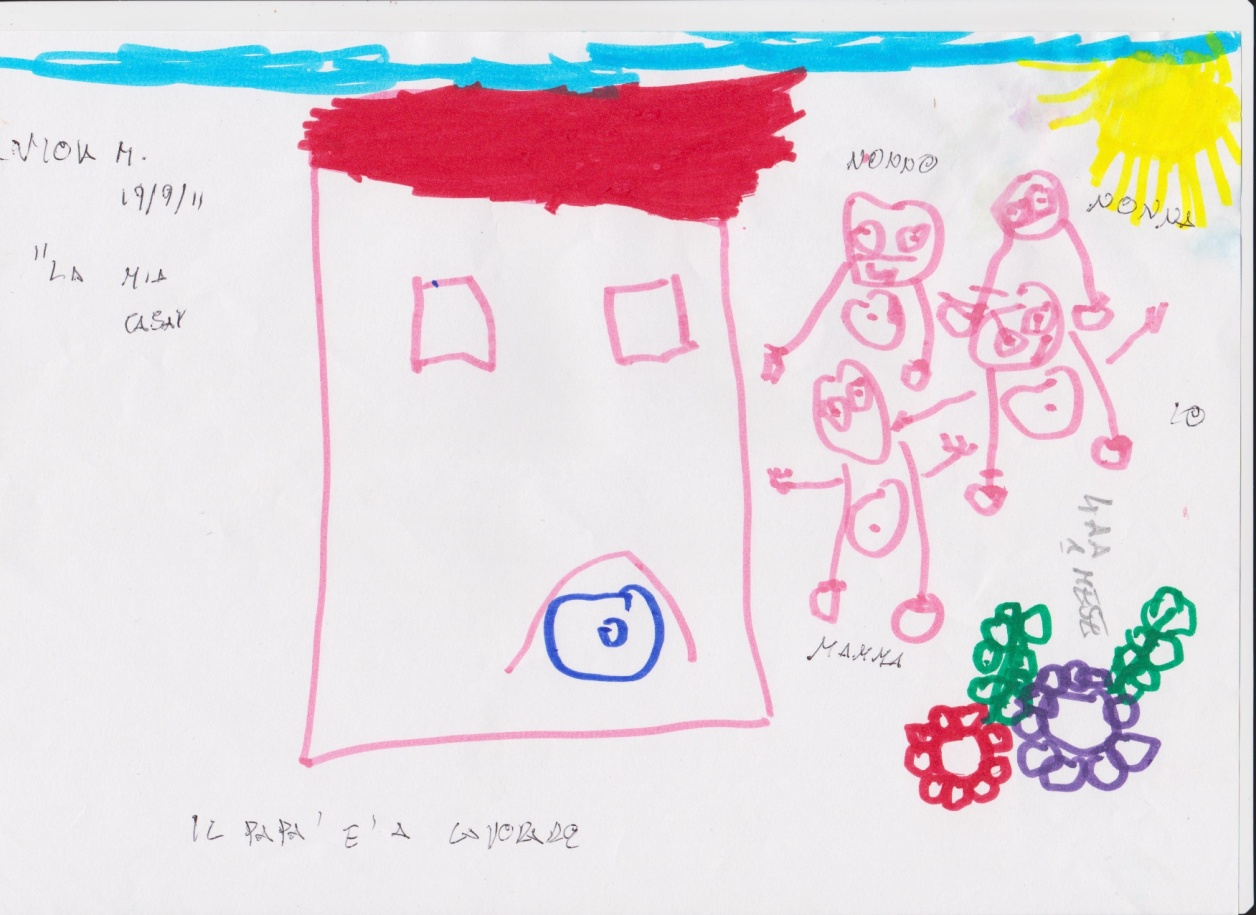 M.
19/9/11
"LA MIA
CASA"
NONNO
NONNA
IO
4 AA
1 MESE
MAMMA
IL PAPA' E' A LAVORARE